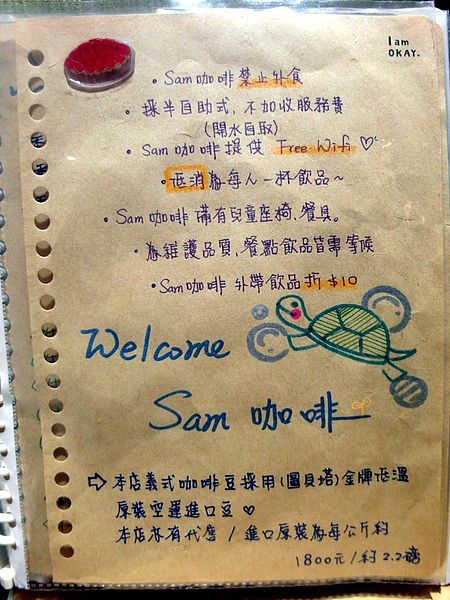 I am
OKAY.
• Sam 咖啡 禁止外食
• 採半自助式, 不加收服務費
(開水自取)
• Sam 咖啡 提供 Free Wifi ♡
• 低消為每人一杯飲品~
• Sam 咖啡 備有兒童座椅、餐具。
• 為維護品質, 餐點飲品皆需等候
• Sam 咖啡 外帶飲品折 $10
Welcome
Sam 咖啡
⇨ 本店義式咖啡豆採用(圖貝塔)金牌低溫
原裝空運進口豆 ♡
本店亦有代售 / 進口原裝為每公斤約
1800元 / 約 2.2磅